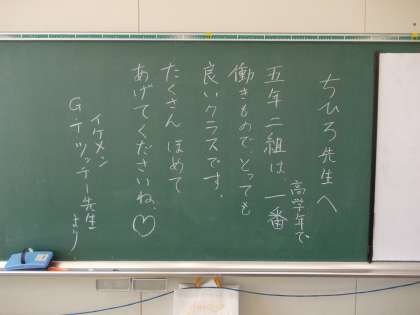 ちひろ先生へ
五年二組は、高学年で一番
働きもので、とっても
良いクラスです。
たくさんほめて
あげてくださいね。♡
イケメン
G・テツッチー先生
より